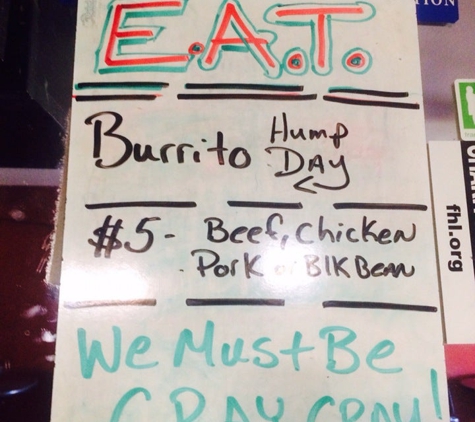 E.A.T.
TION
Burrito Hump
DAY
$5- Beef, Chicken
Pork or Blk Bean
We Must Be
CRAY CRAY!
fhl.org